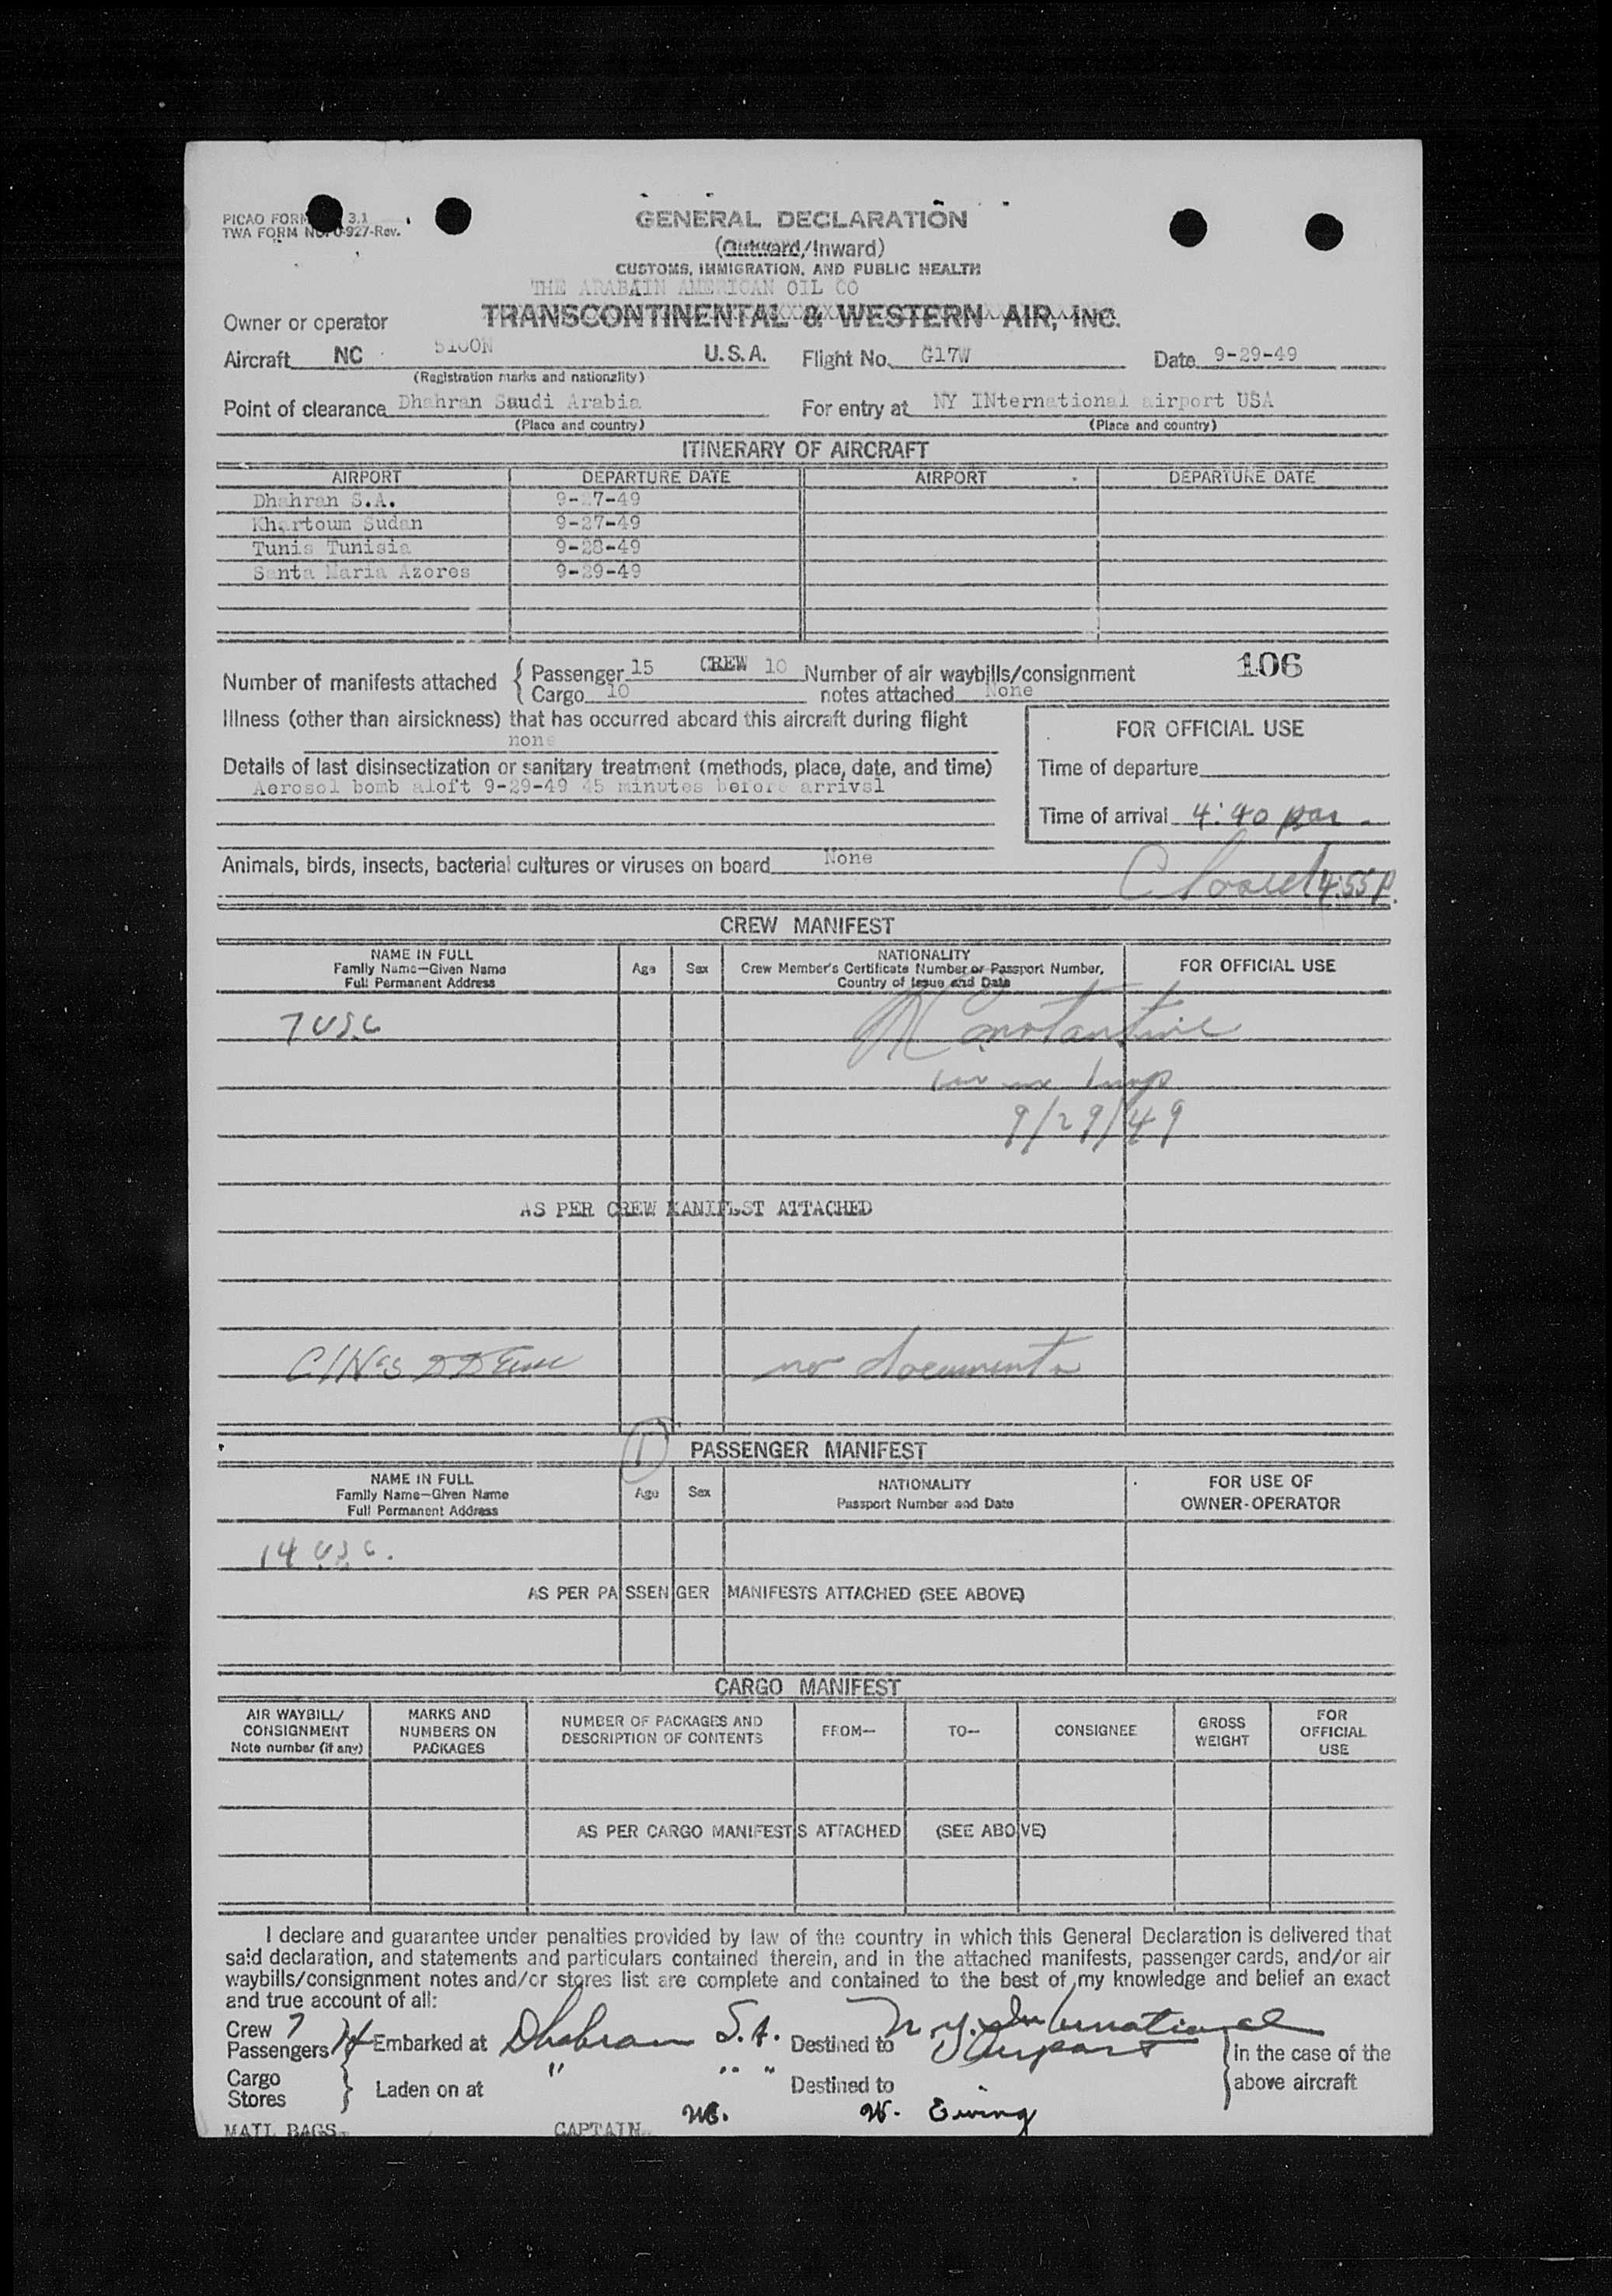 PICAO FORM 3.1
TWA FORM NO. 0-927-Rev.
GENERAL DECLARATION
(Outward/Inward)
CUSTOMS, IMMIGRATION, AND PUBLIC HEALTH
THE ARABAIN AMERICAN OIL CO
Owner or operator TRANSCONTINENTAL & WESTERN AIR, INC.
Aircraft NC 5100N U.S.A. Flight No. G17W Date 9-29-49
(Registration marks and nationality)
Point of clearance Dhahran Saudi Arabia For entry at NY INternational airport USA
(Place and country) (Place and country)
ITINERARY OF AIRCRAFT
AIRPORT DEPARTURE DATE AIRPORT DEPARTURE DATE
Dhahran S.A. 9-27-49
Khartoum Sudan 9-27-49
Tunis Tunisia 9-28-49
Santa Maria Azores 9-29-49
Number of manifests attached { Passenger 15 CREW 10 Number of air waybills/consignment 106
Cargo 10 notes attached None
Illness (other than airsickness) that has occurred aboard this aircraft during flight
none
FOR OFFICIAL USE
Details of last disinsectization or sanitary treatment (methods, place, date, and time)
Aerosol bomb aloft 9-29-49 45 minutes before arrivsl
Time of departure
Time of arrival 4:40 pm
Animals, birds, insects, bacterial cultures or viruses on board None
Closed 4:55 P.
CREW MANIFEST
NAME IN FULL
Family Name—Given Name
Full Permanent Address
Age Sex
NATIONALITY
Crew Member's Certificate Number or Passport Number,
Country of Issue and Date
FOR OFFICIAL USE
7 USC
Constantine
9/29/49
AS PER CREW MANIFEST ATTACHED
no documents
1
PASSENGER MANIFEST
NAME IN FULL
Family Name—Given Name
Full Permanent Address
Age Sex
NATIONALITY
Passport Number and Date
FOR USE OF
OWNER-OPERATOR
14 USC.
AS PER PASSENGER MANIFESTS ATTACHED (SEE ABOVE)
CARGO MANIFEST
AIR WAYBILL/
CONSIGNMENT
Note number (if any)
MARKS AND
NUMBERS ON
PACKAGES
NUMBER OF PACKAGES AND
DESCRIPTION OF CONTENTS
FROM— TO— CONSIGNEE
GROSS
WEIGHT
FOR
OFFICIAL
USE
AS PER CARGO MANIFESTS ATTACHED (SEE ABOVE)
I declare and guarantee under penalties provided by law of the country in which this General Declaration is delivered that
said declaration, and statements and particulars contained therein, and in the attached manifests, passenger cards, and/or air
waybills/consignment notes and/or stores list are complete and contained to the best of my knowledge and belief an exact
and true account of all:
Crew 7
Passengers 14 Embarked at Dhahran S.A. Destined to N.Y. International Airport
Cargo " " "
Stores Laden on at Destined to
in the case of the
above aircraft
W. Ewing
MAIL BAGS. CAPTAIN.